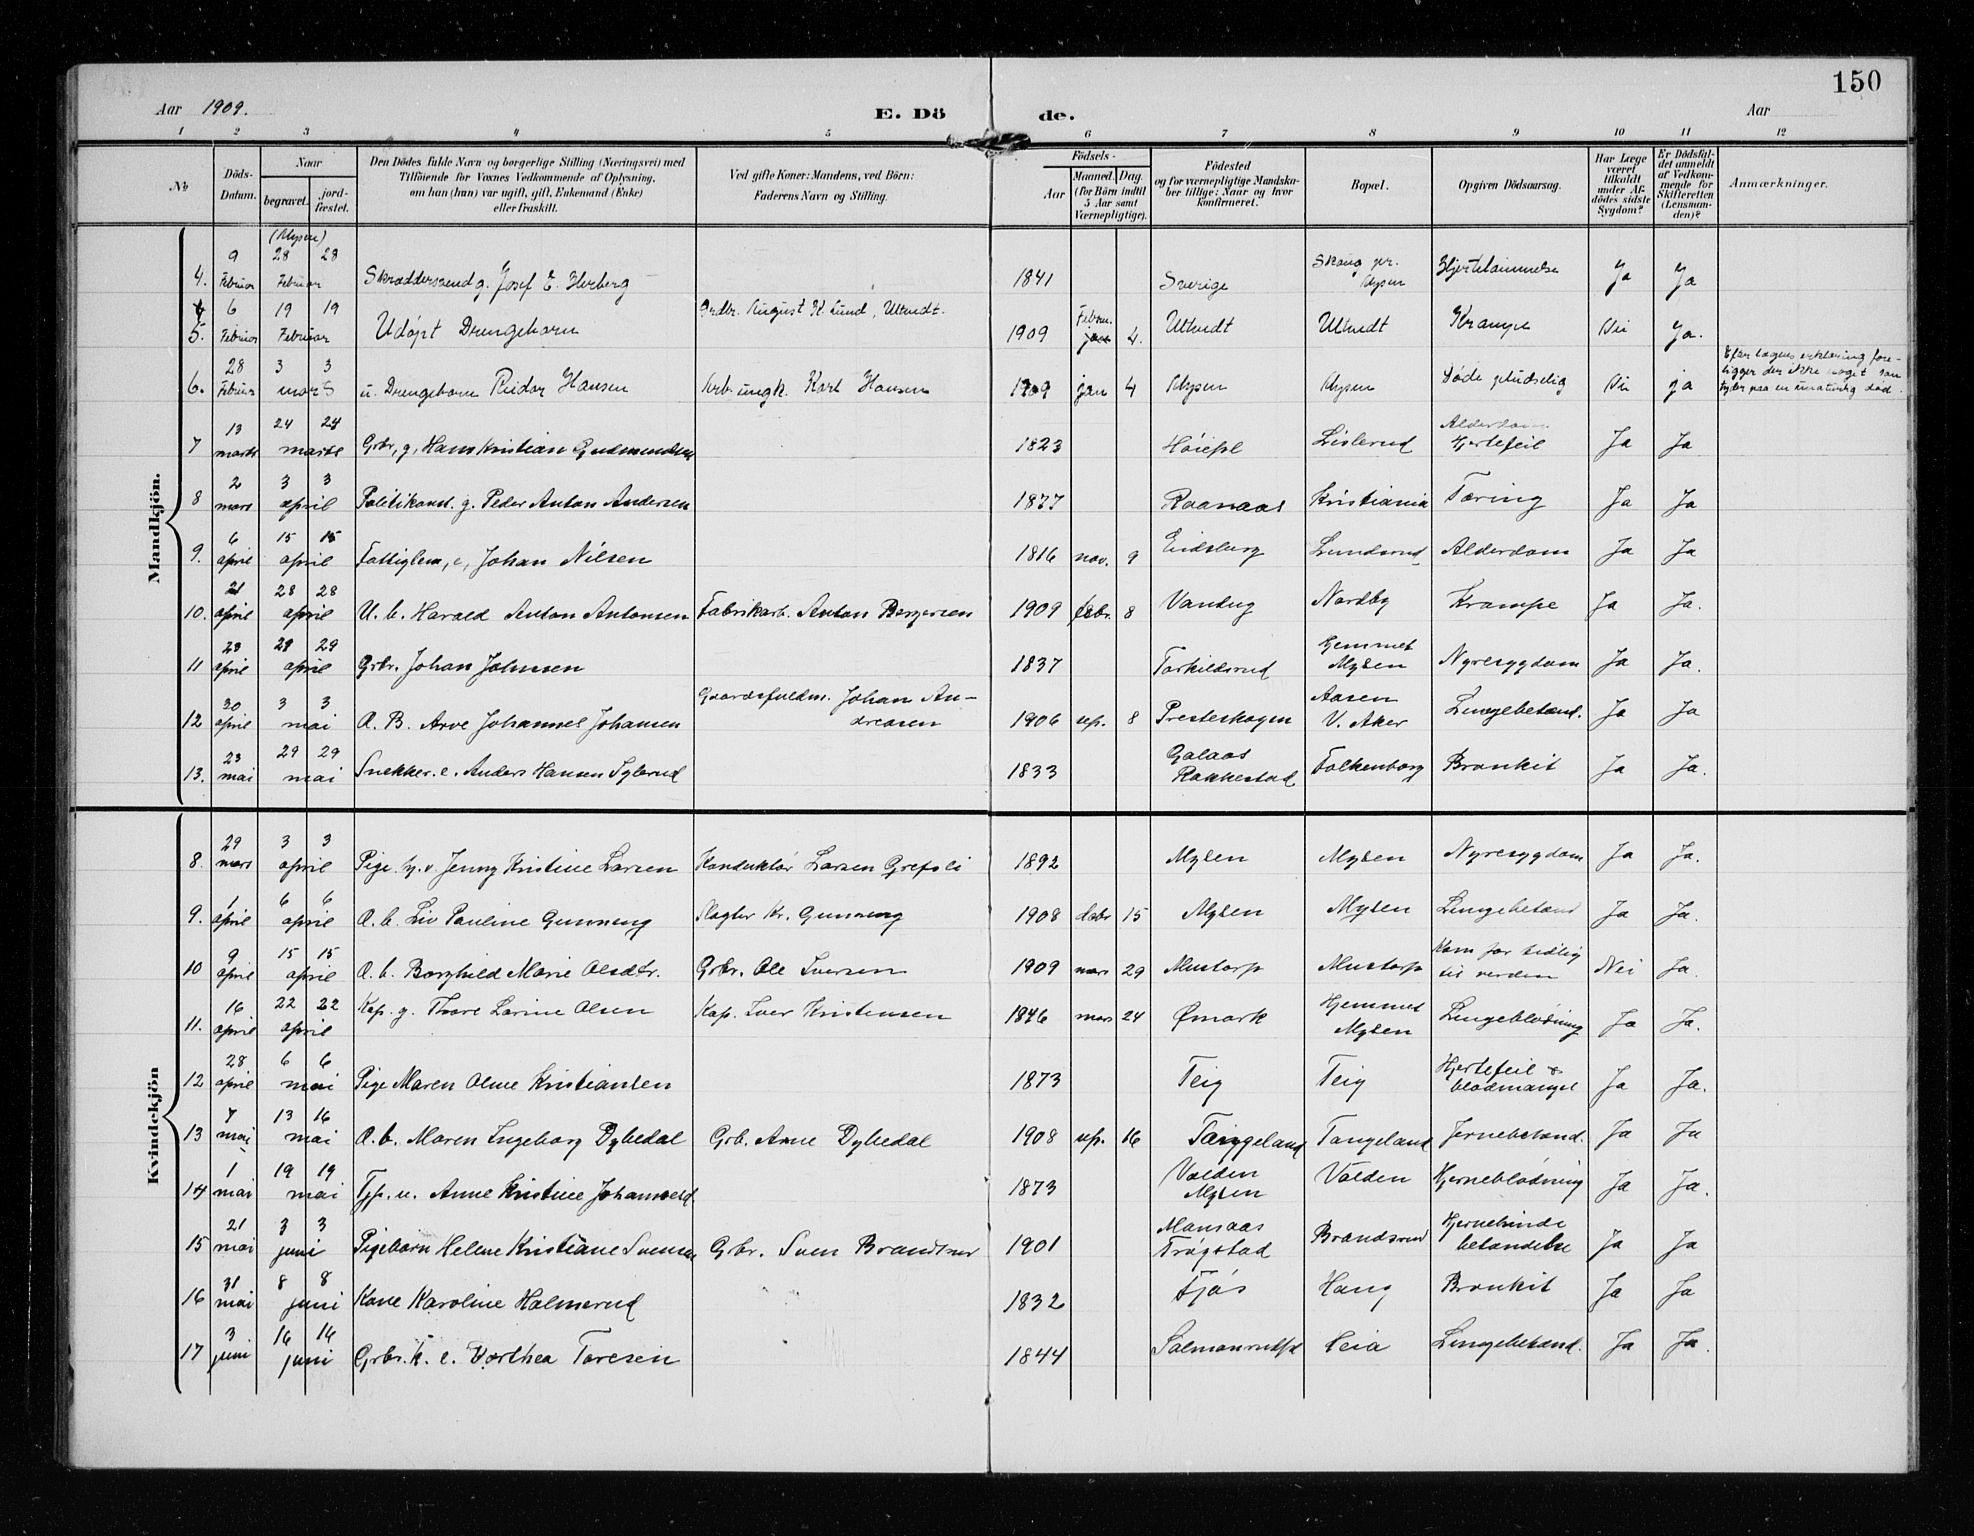 150
Aar 1909. E. Dö de. Aar
1 2 3 4 5 6 7 8 9 10 11 12
No Döds-Datum. Naar begravet. jord-fæstet. Den Dödes fulde Navn og borgerlige Stilling (Næringsvei) med Tilföiende for Voxnes Vedkommende af Oplysning, om han (hun) var ugift, gift, Enkemand (Enke) eller fraskilt. Ved gifte Koner: Mandens, ved Börn: Faderens Navn og Stilling. Födsels- Aar Maaned. Dag. (for Börn indtil 5 Aar samt Værnepligtige). Födested og for værnepligtige Mandskaber tillige: Naar og hvor konfirmeret. Bopæl. Opgiven Dödsaarsag. Har Læge været tilkaldt under Afdödes sidste Sygdom? Er Dödsfaldet anmeldt af Vedkommende for Skifteretten (Lensmanden)? Anmærkninger.
Mandkjön.
(Mysen)
4. 9 Februar 28 28 Februar Skræddersvend g. Josef E. Herberg 1841 Sverige Skaug pr. Mysen Hjertelammelse Ja Ja
5. 6 Februar 19 19 Februar Udöpt Drengebarn Grdbr. August K. Lund, Ultvedt. 1909 Febru. 4. Ultvedt Ultvedt Krampe Nei Ja.
6. 28 Februar 3 3 mars u. Drengebarn Reidar Hansen Arb. ungk. Karl Hansen 1909 jan 4 Mysen Mysen Döde pludselig Nei ja Efter lægens erklæring foreligger der ikke noget som tyder paa en unaturlig död.
7 13 marts 24 24 marts Grbr, g, Hans Kristian Gudmundsen 1823 Höiepl Lislerud Alderdom Hjertefeil Ja Ja
8 2 mars 3 3 april Politikonst. g. Peder Anton Andersen 1877 Raanaas Kristiania Tæring Ja Ja
9. 6 april 15 15 april Fattiglem, e, Johan Nilsen 1816 nov. 9 Eidsberg Lundsrud Alderdom Ja Ja
10. 21 april 28 28 april U. b. Harald Anton Antonsen Fabrikarb. Anton Bergersen 1909 febr. 8 Vandug Nordby Krampe Ja Ja.
11 23 april 29 29 april Grbr. Johan Johnsen 1837 Torkildsrud Hjemmet Mysen Nyresygdom Ja Ja.
12 30 april 3 3 mai Æ. B. Arve Johannes Johansen Gaardsfuldm. Johan Andreasen 1906 sep. 8 Presteskogen Aasen V. Aker Lungebetænd. Ja Ja
13. 23 mai 29 29 mai Snekker. e. Anders Hansen Sylerud 1833 Galaas Rakkestad Falkenborg Bronkit Ja Ja.
Kvindekjön
8. 29 mars 3 3 april Pige Jenny Kristine Larsen Konduktör Larsen Grefsli 1892 Mysen Mysen Nyresygdom Ja Ja.
9. 1 april 6 6 april Æ. b. Liv Pauline Gunneng Slagter Kr. Gunneng 1908 decbr 15 Mysen Mysen Lungebetænd Ja Ja.
10 9 april 15 15 april Æ. b. Borghild Marie Olsdtr. Grbr. Ole Iversen 1909 mars 29 Mustorp Mustorp Kom for tidlig til verden Nei Ja.
11. 16 april 22 22 april Kap. g. Thore Larine Olsen Kap. Iver Kristensen 1846 mars 24 Ømark Hjemmet Mysen Lungeblödning Ja Ja.
12 28 april 6 6 mai Pige Maren Oline Kristiansen 1873 Teig Teig Hjertefeil & blodmangel Ja Ja.
13 7 mai 13 16 mai Æ. b. Maren Ingeborg Dybedal Grb. Arne Dybedal 1908 sep. 16 Tangeland Tangeland Jernebetænd. Ja Ja
14 1 mai 19 19 mai Tjp. u. Anne Kristine Johannesd. 1873 Volden Mysen Volden Hjerneblödning Ja Ja.
15 21 mai 3 3 juni Pigebarn Helene Kristiane Svensen Grbr. Sven Brandsrud 1901 Monsaas Trögstad Brandsrud Hjernehinde betændelse Ja Ja
16 31 mai 8 8 juni Kone Karoline Holmsrud 1832 Fjös Haug Bronkit Ja Ja
17 3 juni 16 16 juni Grbr. K. e. Dorthea Toresen 1844 Salmonrudspl Leia Lungebetænd. Ja Ja.